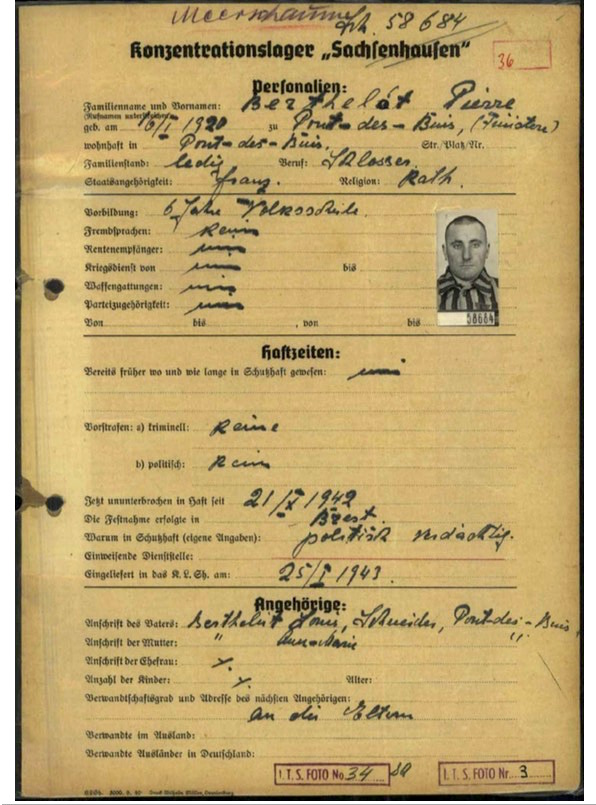 Meerschaum
Sch. 58684
Konzentrationslager „Sachsenhausen“
36
Personalien:
Familienname und Vornamen: Berthelot Pierre
(Rufnamen unterstreichen)
geb. am 16/I 1920 zu Pont-des-Buis, (Finistere)
wohnhaft in Pont-des-Buis, Str./Platz/Nr.
Familienstand: ledig Beruf: Schlosser
Staatsangehörigkeit: franz. Religion: Kath.
Vorbildung: 6 Jahre Volksschule.
Fremdsprachen: Kein
Rentenempfänger: nein
Kriegsdienst von nein bis
Waffengattungen: nein
Parteizugehörigkeit: nein
Von bis , von bis
58684
Haftzeiten:
Bereits früher wo und wie lange in Schutzhaft gewesen: nein
Vorstrafen: a) kriminell: Keine
b) politisch: Kein
Jetzt ununterbrochen in Haft seit 21/X 1942
Die Festnahme erfolgte in Brest.
Warum in Schutzhaft (eigene Angaben): politisch verdächtig.
Einweisende Dienststelle:
Eingeliefert in das K. L. Sh. am: 25/I 1943.
Angehörige:
Anschrift des Vaters: Berthelot Louis, Schneider, Pont-des-Buis,
Anschrift der Mutter: " Anne-Marie "
Anschrift der Ehefrau: ⁒
Anzahl der Kinder: ⁒ Alter:
Verwandtschaftsgrad und Adresse des nächsten Angehörigen:
an die Eltern
Verwandte im Ausland:
Verwandte Ausländer in Deutschland:
I.T.S. FOTO No 34
I.T.S. FOTO Nr. 3